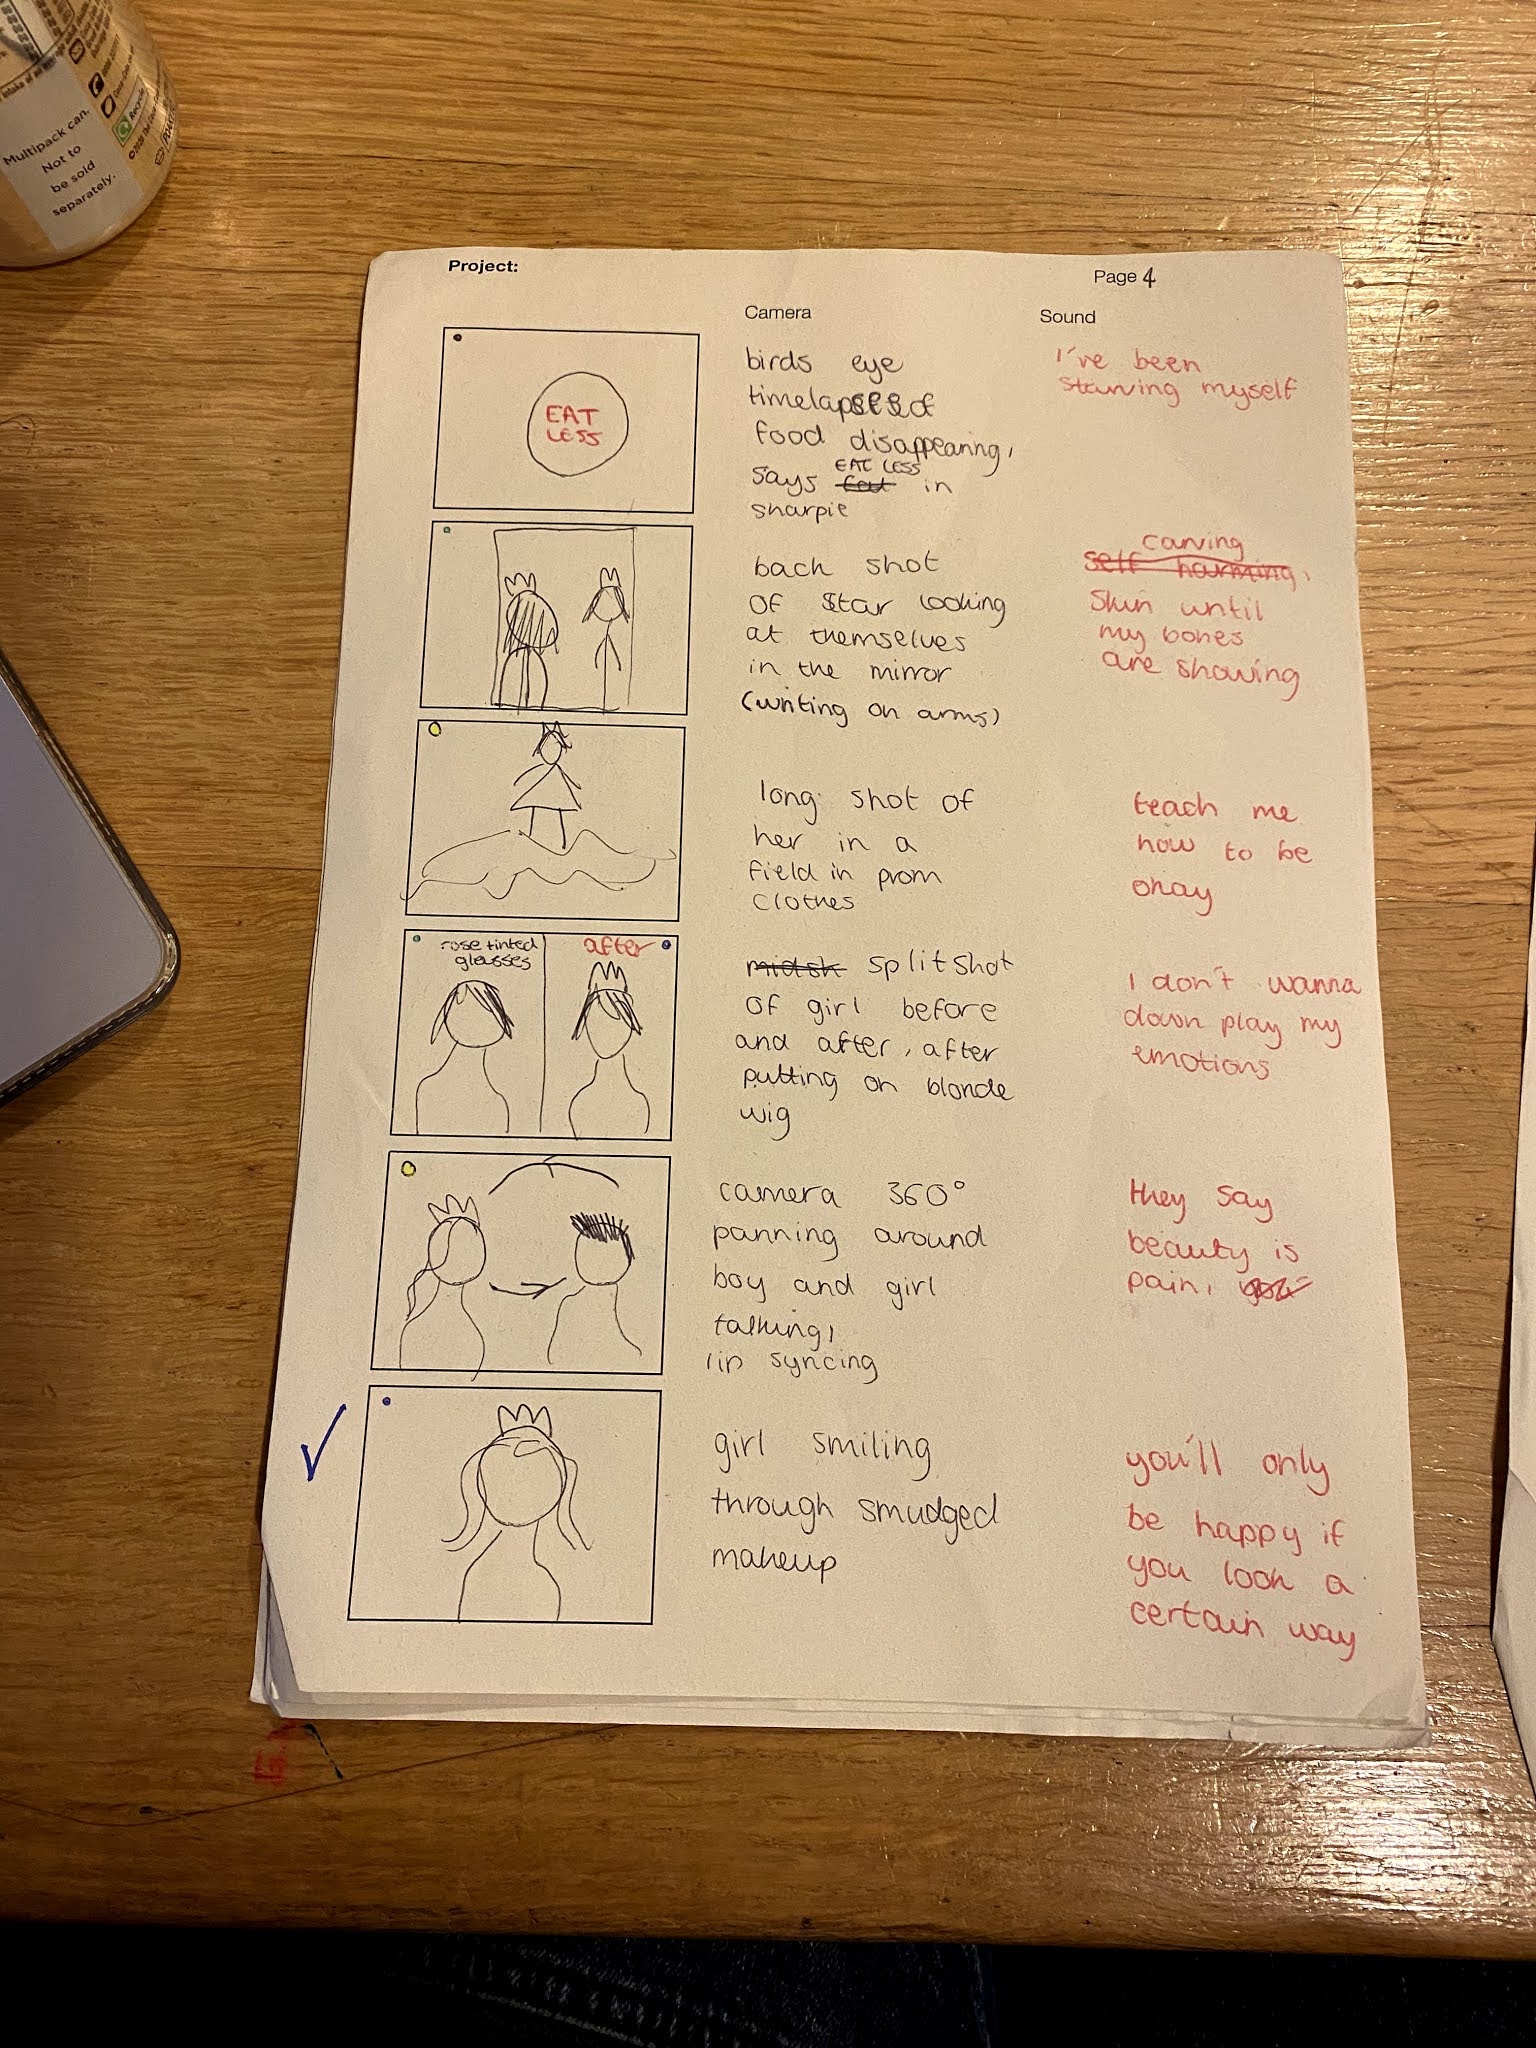 Multipack can.
Not to
be sold
separately.
Recycle
Project:
Page 4
Camera
Sound
EAT
LESS
birds eye
timelapse of
food disappearing,
EAT LESS
says in
sharpie
I've been
starving myself
back shot
of star looking
at themselves
in the mirror
(writing on arms)
carving
self harming,
skin until
my bones
are showing
long shot of
her in a
field in prom
clothes
teach me
how to be
okay
rose tinted
glasses
after
midsh splitshot
of girl before
and after, after
putting on blonde
wig
I don't wanna
down play my
emotions
camera 360°
panning around
boy and girl
talking,
lip syncing
they say
beauty is
pain,
girl smiling
through smudged
makeup
you'll only
be happy if
you look a
certain way